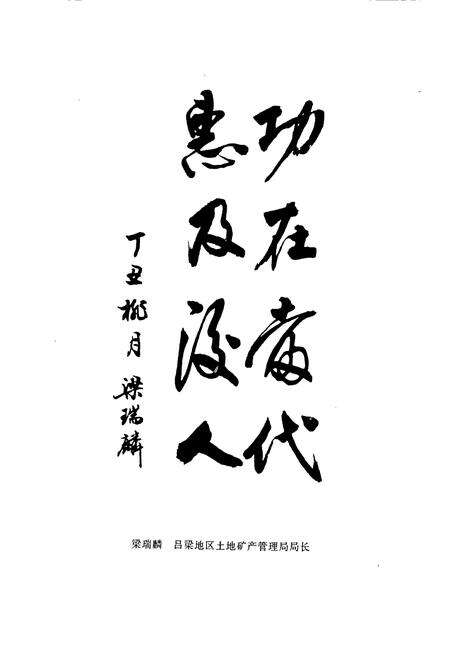 功在當代
惠及後人
丁丑桃月 梁瑞麟
梁瑞麟 吕梁地区土地矿产管理局局长